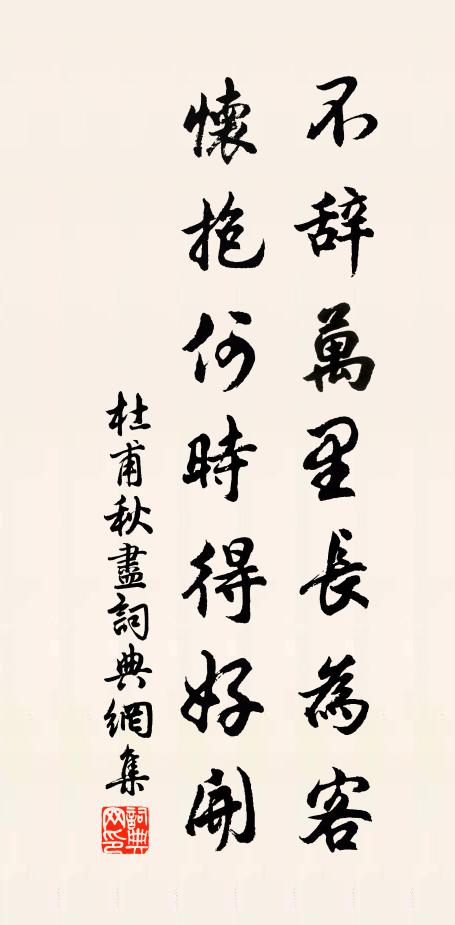 不辞萬里長為客
懷抱何時得好開
杜甫秋盡詞典網集
詞典網印